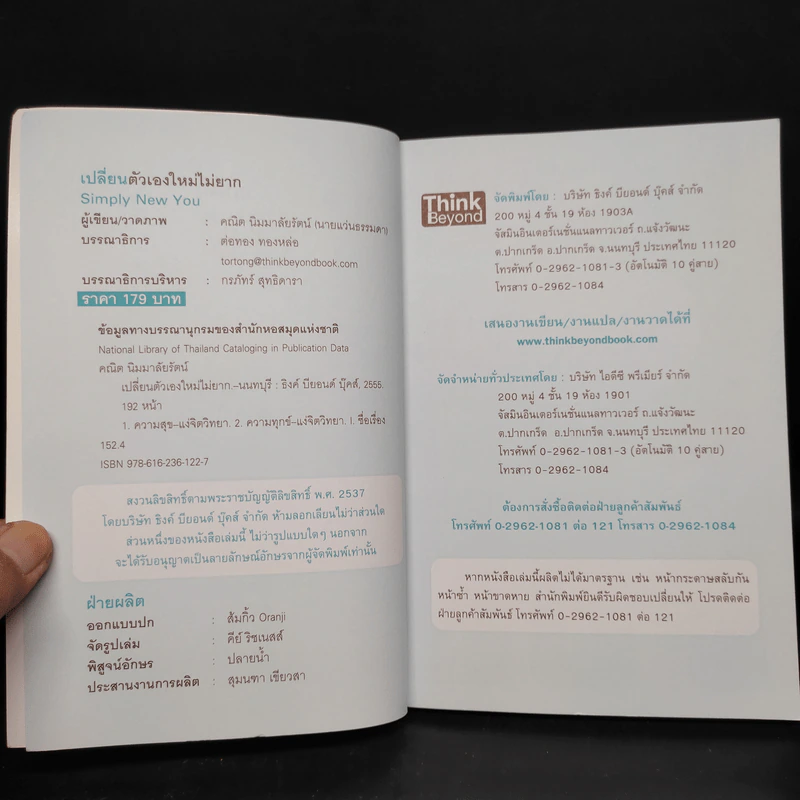 เปลี่ยนตัวเองใหม่ไม่ยาก
Simply New You
ผู้เขียน/วาดภาพ : คณิต นิมมาลัยรัตน์ (นายแว่นธรรมดา)
บรรณาธิการ : ต่อทอง ทองหล่อ
tortong@thinkbeyondbook.com
บรรณาธิการบริหาร : กรภัทร์ สุทธิดารา
ราคา 179 บาท
ข้อมูลทางบรรณานุกรมของสำนักหอสมุดแห่งชาติ
National Library of Thailand Cataloging in Publication Data
คณิต นิมมาลัยรัตน์
เปลี่ยนตัวเองใหม่ไม่ยาก.--นนทบุรี : ธิงค์ บียอนด์ บุ๊คส์, 2555.
192 หน้า
1. ความสุข--แง่จิตวิทยา. 2. ความทุกข์--แง่จิตวิทยา. I. ชื่อเรื่อง
152.4
ISBN 978-616-236-122-7
สงวนลิขสิทธิ์ตามพระราชบัญญัติลิขสิทธิ์ พ.ศ. 2537
โดยบริษัท ธิงค์ บียอนด์ บุ๊คส์ จำกัด ห้ามลอกเลียนไม่ว่าส่วนใด
ส่วนหนึ่งของหนังสือเล่มนี้ ไม่ว่ารูปแบบใดๆ นอกจาก
จะได้รับอนุญาตเป็นลายลักษณ์อักษรจากผู้จัดพิมพ์เท่านั้น
ฝ่ายผลิต
ออกแบบปก : ส้มกิ้ว Oranji
จัดรูปเล่ม : คีย์ ริชเนสส์
พิสูจน์อักษร : ปลายน้ำ
ประสานงานการผลิต : สุมนฑา เขียวสา
Think
Beyond
จัดพิมพ์โดย : บริษัท ธิงค์ บียอนด์ บุ๊คส์ จำกัด
200 หมู่ 4 ชั้น 19 ห้อง 1903A
จัสมินอินเตอร์เนชั่นแนลทาวเวอร์ ถ.แจ้งวัฒนะ
ต.ปากเกร็ด อ.ปากเกร็ด จ.นนทบุรี ประเทศไทย 11120
โทรศัพท์ 0-2962-1081-3 (อัตโนมัติ 10 คู่สาย)
โทรสาร 0-2962-1084
เสนองานเขียน/งานแปล/งานวาดได้ที่
www.thinkbeyondbook.com
จัดจำหน่ายทั่วประเทศโดย : บริษัท ไอดีซี พรีเมียร์ จำกัด
200 หมู่ 4 ชั้น 19 ห้อง 1901
จัสมินอินเตอร์เนชั่นแนลทาวเวอร์ ถ.แจ้งวัฒนะ
ต.ปากเกร็ด อ.ปากเกร็ด จ.นนทบุรี ประเทศไทย 11120
โทรศัพท์ 0-2962-1081-3 (อัตโนมัติ 10 คู่สาย)
โทรสาร 0-2962-1084
ต้องการสั่งซื้อติดต่อฝ่ายลูกค้าสัมพันธ์
โทรศัพท์ 0-2962-1081 ต่อ 121 โทรสาร 0-2962-1084
หากหนังสือเล่มนี้ผลิตไม่ได้มาตรฐาน เช่น หน้ากระดาษสลับกัน
หน้าซ้ำ หน้าขาดหาย สำนักพิมพ์ยินดีรับผิดชอบเปลี่ยนให้ โปรดติดต่อ
ฝ่ายลูกค้าสัมพันธ์ โทรศัพท์ 0-2962-1081 ต่อ 121